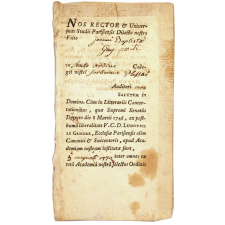 NOS RECTOR & Univer-
sum Studii Parisiensis Dilecto nostro
Filio
Joanni Baptistæ
in
Col-
legii
Auditori
SALUTEM in
Domino. Cùm in Litterariis Concer-
tationibus, quæ Supremi Senatûs
Decreto die 8 Martii 1746, ex postu-
mâ liberalitate V. C. D. LUDOVICI
LE GENDRE, Ecclesiæ Parisiensis olim
Canonici & Succentoris, apud Aca-
demiam nostram institutæ sunt,
inter omnes ex
totâ Academiâ nostrâ selectos Ordinis